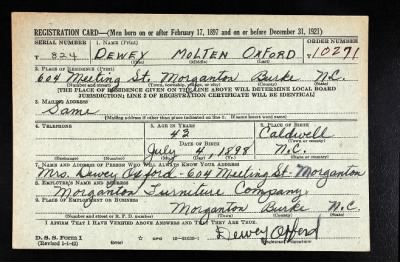 REGISTRATION CARD—(Men born on or after February 17, 1897 and on or before December 31, 1921)
SERIAL NUMBER 1. NAME (Print) ORDER NUMBER
T 824 DEWEY MOLTEN OXFORD T 10271
(First) (Middle) (Last)
2. PLACE OF RESIDENCE (Print)
604 Meeting St. Morganton Burke N.C.
(Number and street) (Town, township, village, or city) (County) (State)
[THE PLACE OF RESIDENCE GIVEN ON THE LINE ABOVE WILL DETERMINE LOCAL BOARD
JURISDICTION; LINE 2 OF REGISTRATION CERTIFICATE WILL BE IDENTICAL]
3. MAILING ADDRESS
Same
[Mailing address if other than place indicated on line 2. If same insert word same]
4. TELEPHONE 5. AGE IN YEARS 6. PLACE OF BIRTH
43 Caldwell
DATE OF BIRTH (Town or county)
July 4, 1898 N.C.
(Exchange) (Number) (Mo.) (Day) (Yr.) (State or country)
7. NAME AND ADDRESS OF PERSON WHO WILL ALWAYS KNOW YOUR ADDRESS
Mrs. Dewey Oxford - 604 Meeting St. Morganton
8. EMPLOYER'S NAME AND ADDRESS
Morganton Furniture Company
9. PLACE OF EMPLOYMENT OR BUSINESS
Morganton Burke N.C.
(Number and street or R. F. D. number) (Town) (County) (State)
I AFFIRM THAT I HAVE VERIFIED ABOVE ANSWERS AND THAT THEY ARE TRUE.
D. S. S. Form 1 Dewey Oxford
(Revised 1-1-42) (over) GPO 16—21630-1 (Registrant's signature)